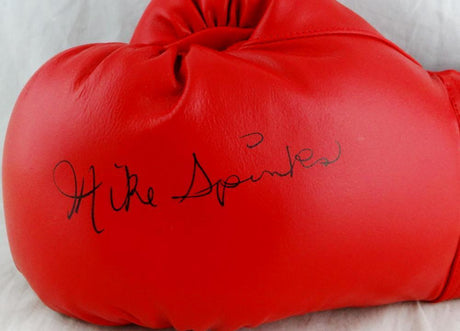 Mike Spinks